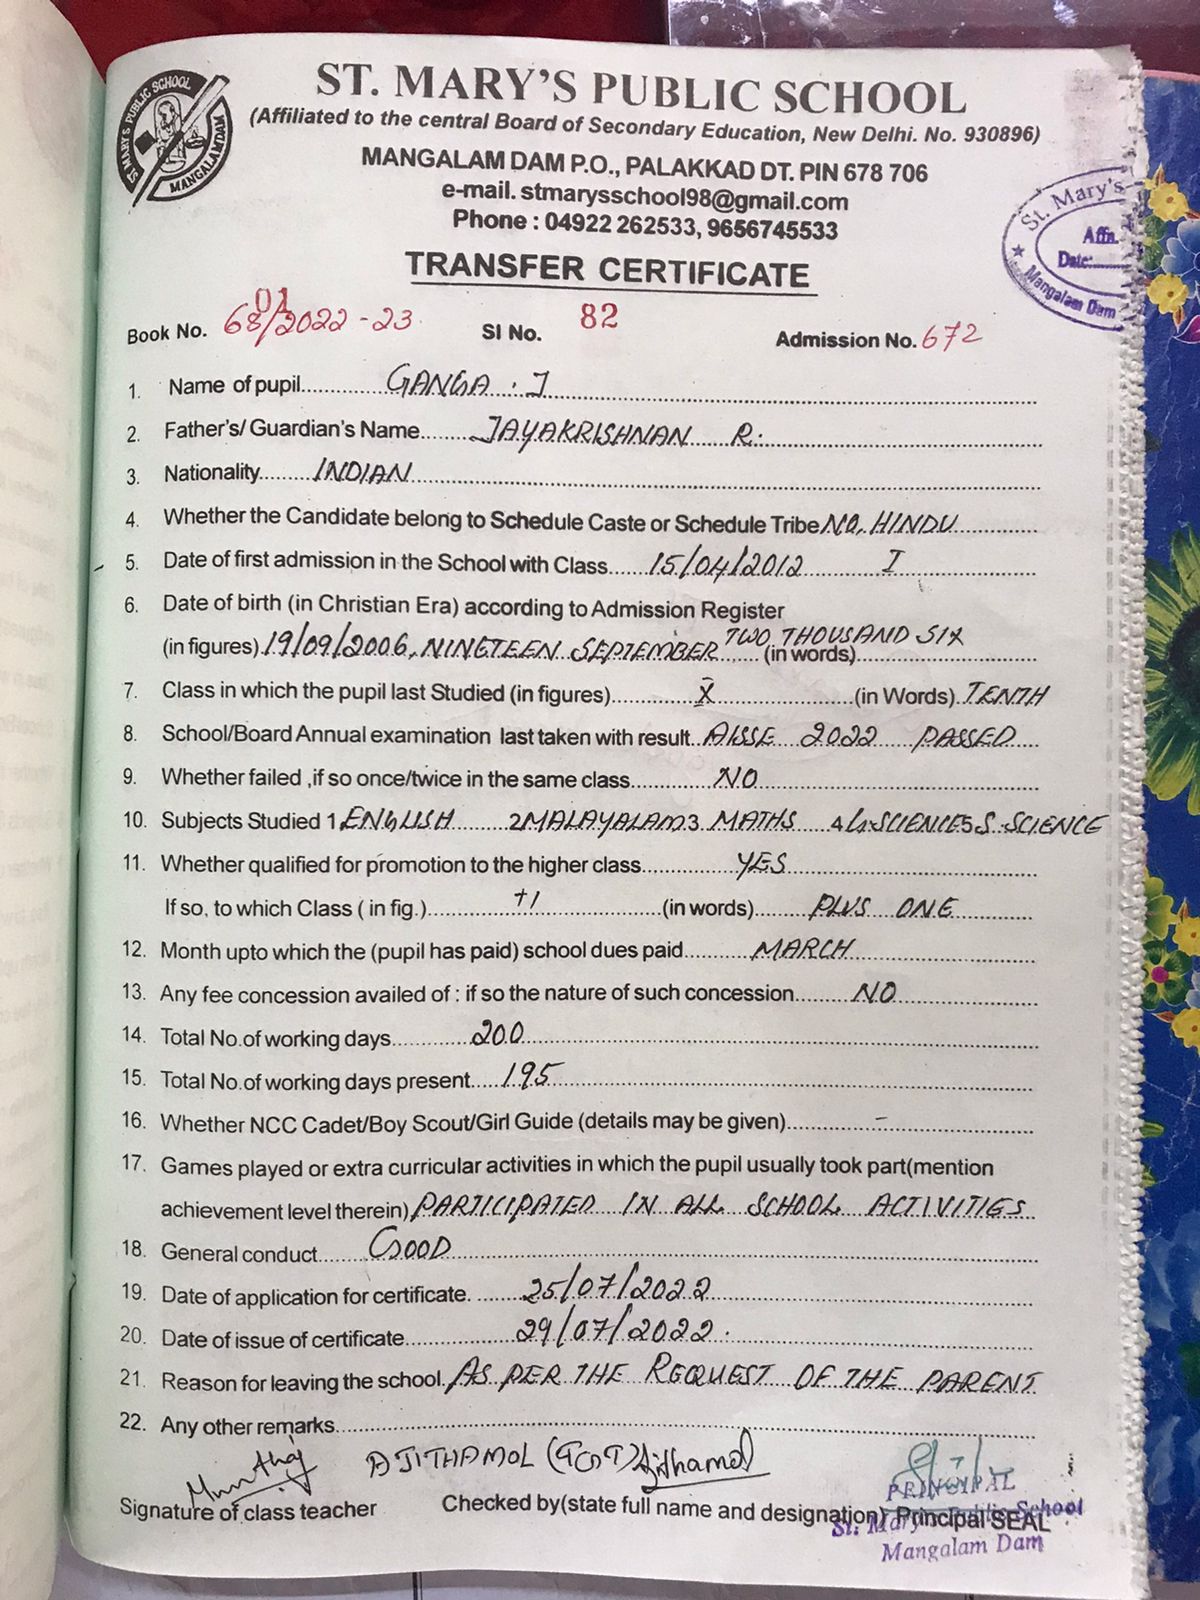 ST. MARY'S PUBLIC SCHOOL
(Affiliated to the central Board of Secondary Education, New Delhi. No. 930896)
MANGALAM DAM P.O., PALAKKAD DT. PIN 678 706
e-mail. stmarysschool98@gmail.com
Phone : 04922 262533, 9656745533
ST MARY'S PUBLIC SCHOOL
MANGALAMDAM
St. Mary's
Affn.
Date:
Mangalam Dam
TRANSFER CERTIFICATE
Book No. 68/2022-23 01 Sl No. 82 Admission No. 672
1. Name of pupil GANGA . J
2. Father's/ Guardian's Name JAYAKRISHNAN R.
3. Nationality INDIAN
4. Whether the Candidate belong to Schedule Caste or Schedule Tribe NO, HINDU
5. Date of first admission in the School with Class 15/04/2012 I
6. Date of birth (in Christian Era) according to Admission Register
(in figures) 19/09/2006, NINETEEN SEPTEMBER TWO THOUSAND SIX (in words)
7. Class in which the pupil last Studied (in figures) X (in Words) TENTH
8. School/Board Annual examination last taken with result AISSE 2022 PASSED
9. Whether failed ,if so once/twice in the same class NO
10. Subjects Studied 1 ENGLISH 2 MALAYALAM 3 MATHS 4 G.SCIENCE 5 S.SCIENCE
11. Whether qualified for promotion to the higher class YES
If so, to which Class ( in fig.) +1 (in words) PLUS ONE
12. Month upto which the (pupil has paid) school dues paid MARCH
13. Any fee concession availed of : if so the nature of such concession NO
14. Total No.of working days 200
15. Total No.of working days present 195
16. Whether NCC Cadet/Boy Scout/Girl Guide (details may be given) -
17. Games played or extra curricular activities in which the pupil usually took part(mention
achievement level therein) PARTICIPATED IN ALL SCHOOL ACTIVITIES
18. General conduct GOOD
19. Date of application for certificate. 25/07/2022
20. Date of issue of certificate 29/07/2022.
21. Reason for leaving the school. AS PER THE REQUEST OF THE PARENT
22. Any other remarks
AJITHAMOL (TGT) Ajithamol
PRINCIPAL
Signature of class teacher Checked by(state full name and designation) Principal SEAL
St. Mary's Public School
Mangalam Dam